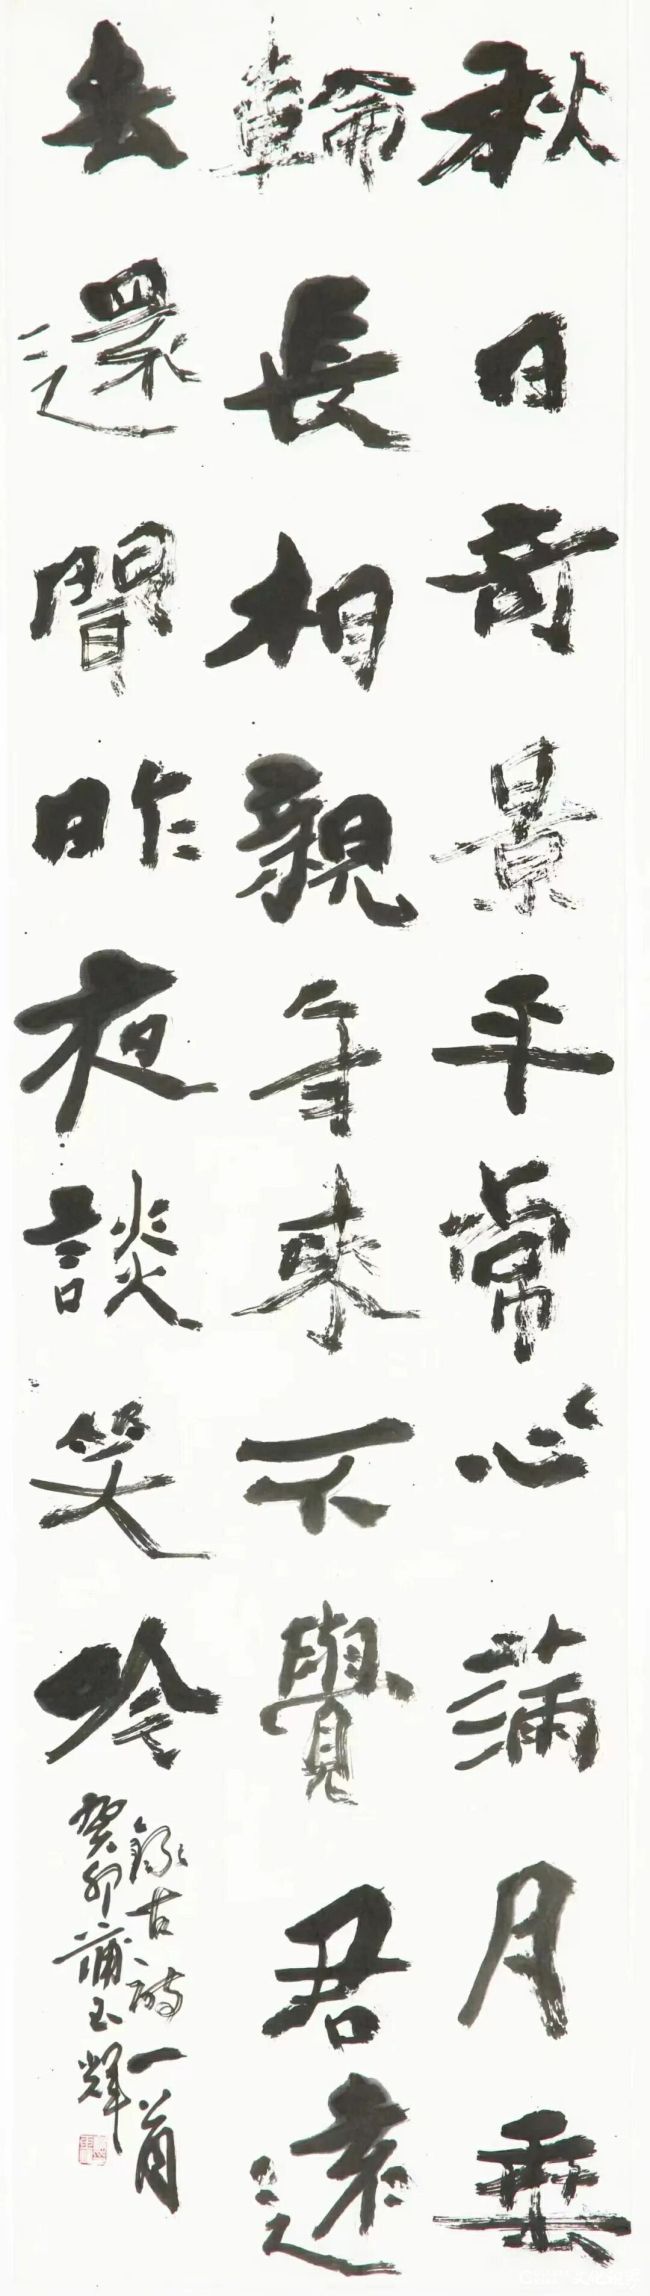 秋日奇景平常心滿月垂
輪長相親年來不覺君遠
去還聞昨夜談笑吟
錄古詩一首
癸卯蒲玉輝